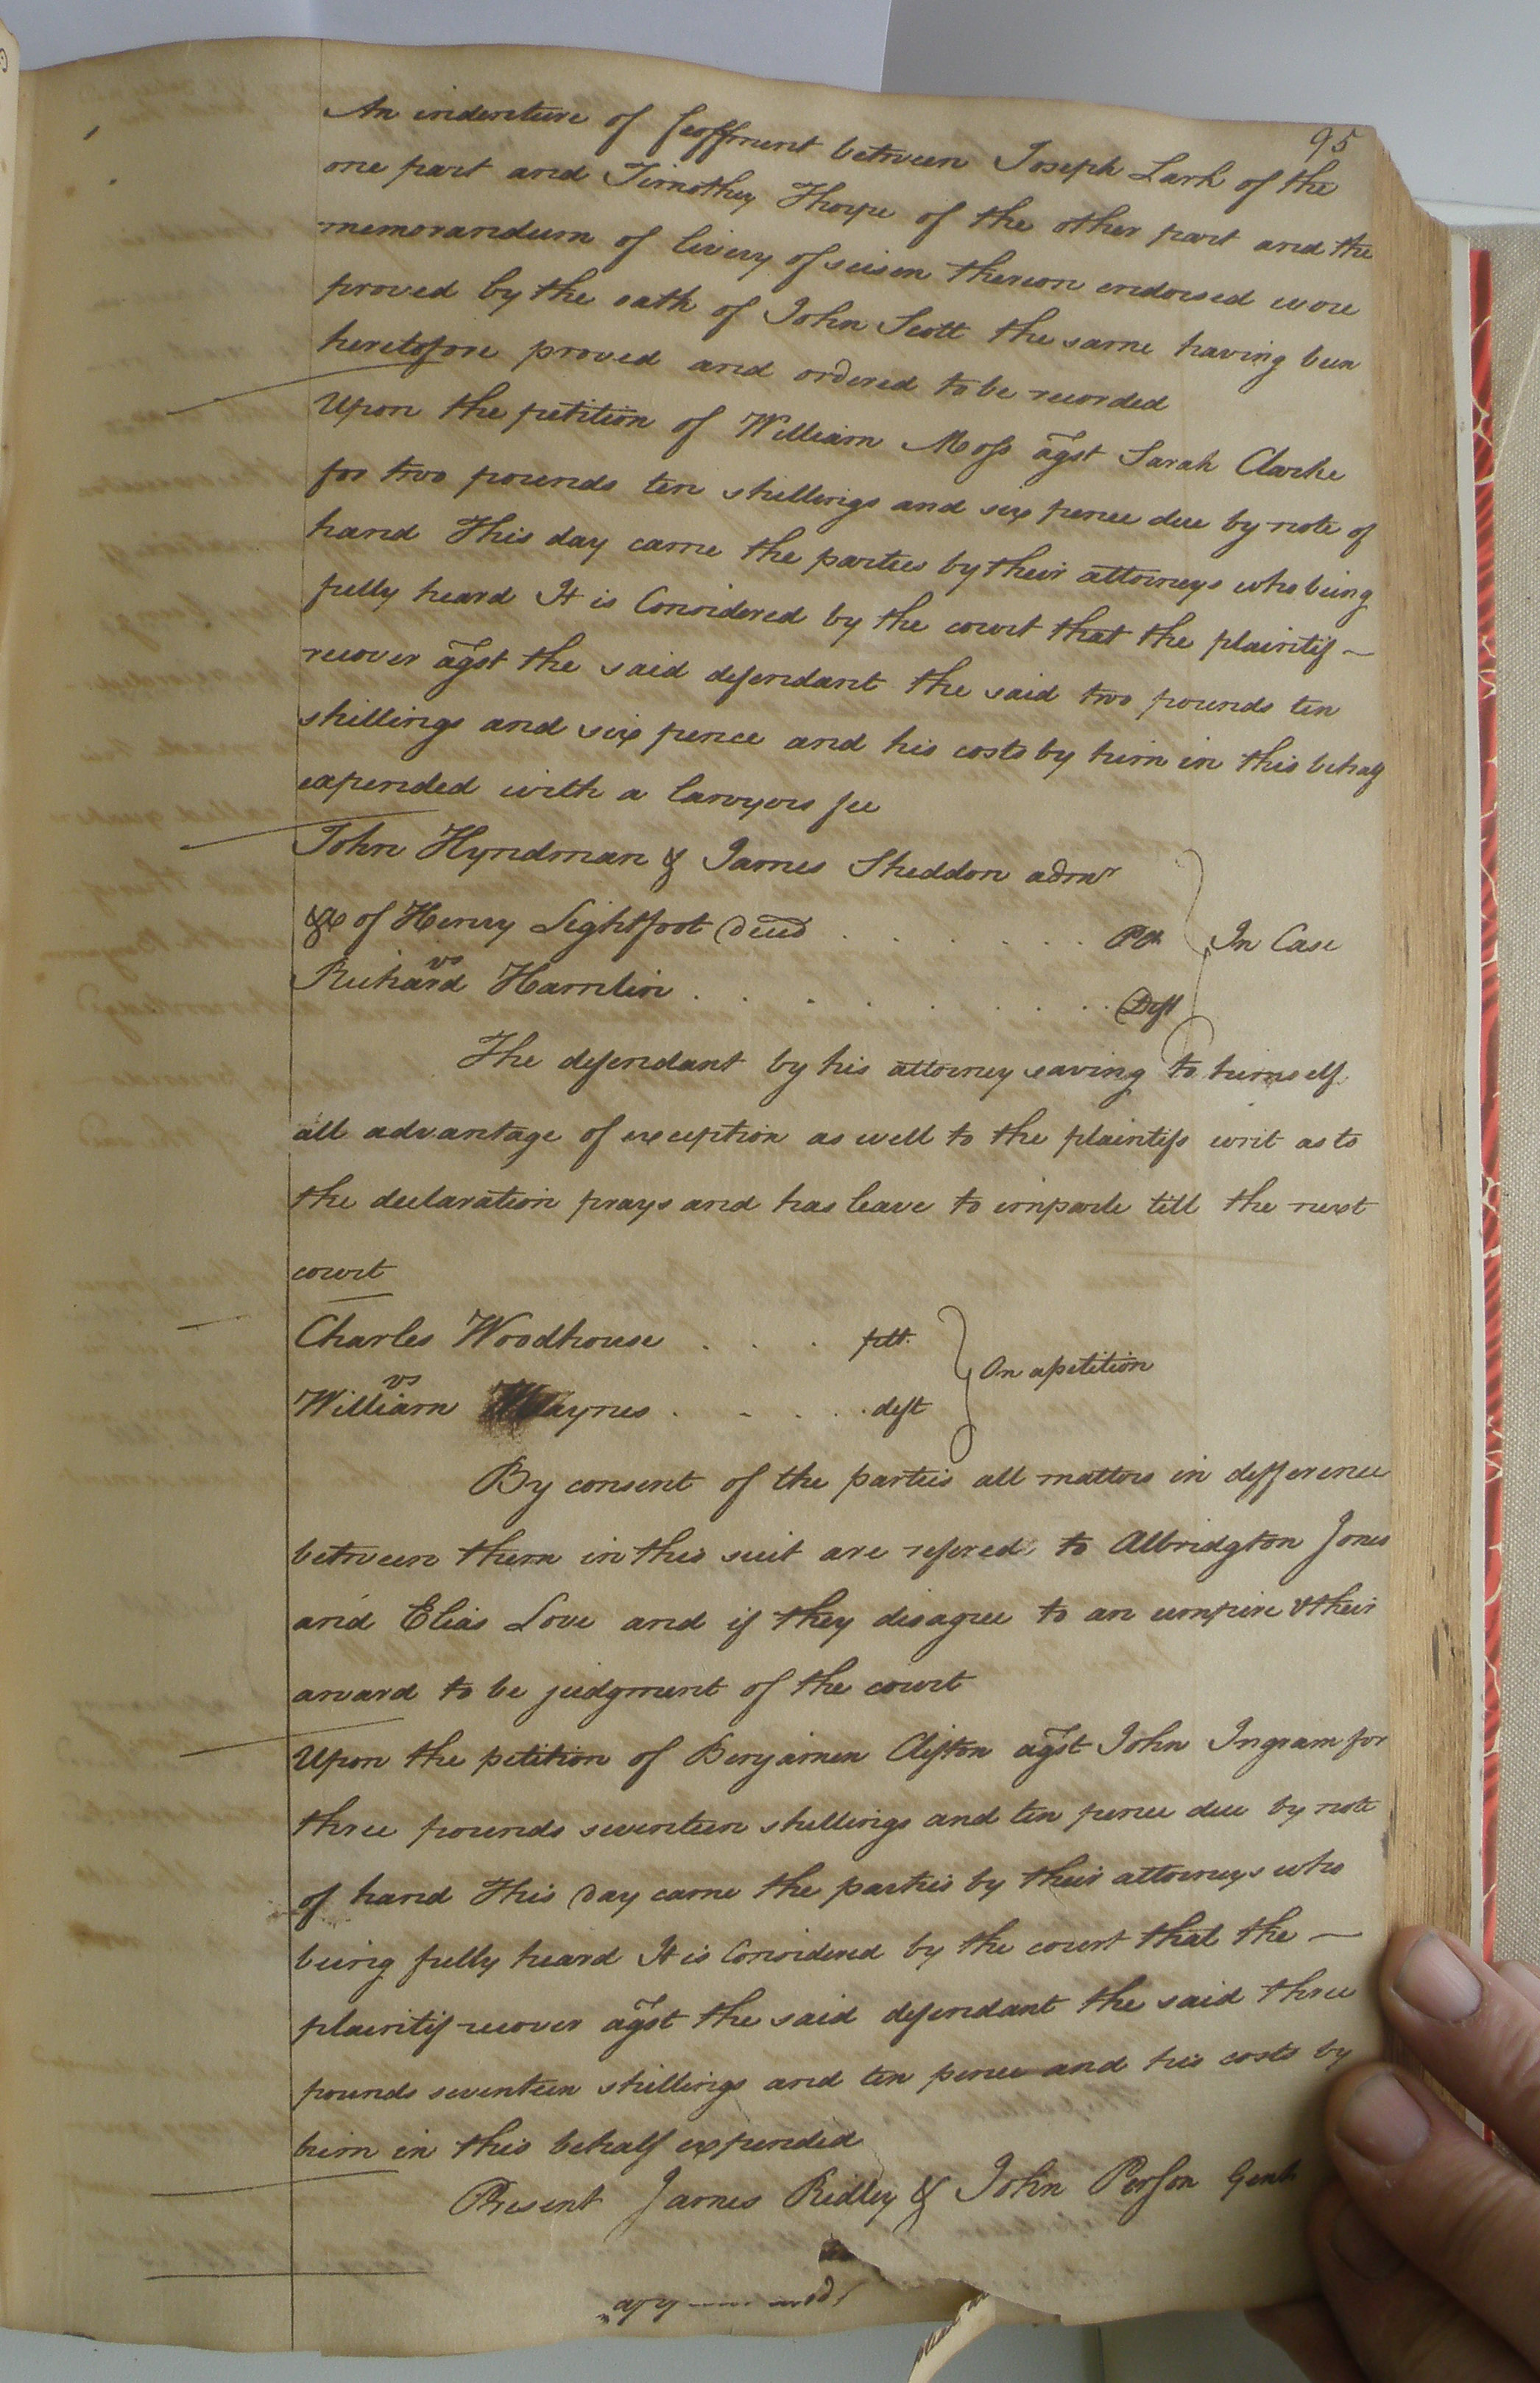 95
An indenture of feoffment between Joseph Lark of the
one part and Timothy Thorpe of the other part and the
memorandum of livery of seisen thereon endorsed were
proved by the oath of John Scott the same having been
heretofore proved and ordered to be recorded
Upon the petition of William Moss agst Sarah Clarke
for two pounds ten shillings and six pence due by note of
hand This day came the parties by their attorneys who being
fully heard It is Considered by the court that the plaintif
recover agst the said defendant the said two pounds ten
shillings and six pence and his costs by him in this behalf
expended with a lawyers fee
John Hyndman & James Sheddon admr
&c of Henry Lightfoot decd . . . . . . Plt In Case
vs
Richard Hamlin . . . . . . . Deft
The defendant by his attorney saving to himself
all advantage of exception as well to the plaintifs writ as to
the declaration prays and has leave to imparle till the next
court
Charles Woodhouse . . . plt. On apetition
vs
William Haynes . . . . deft
By consent of the parties all matters in difference
between them in this suit are refered to Albridgton Jones
and Elias Love and if they disagree to an umpire & their
award to be judgment of the court
Upon the petition of Benjamen Clifton agst John Ingram for
three pounds seventeen shillings and ten pence due by note
of hand This day came the parties by their attorneys who
being fully heard It is Considered by the court that the
plaintif recover agst the said defendant the said three
pounds seventeen shillings and ten pence and his costs by
him in this behalf expended
Present James Ridley & John Person Gent